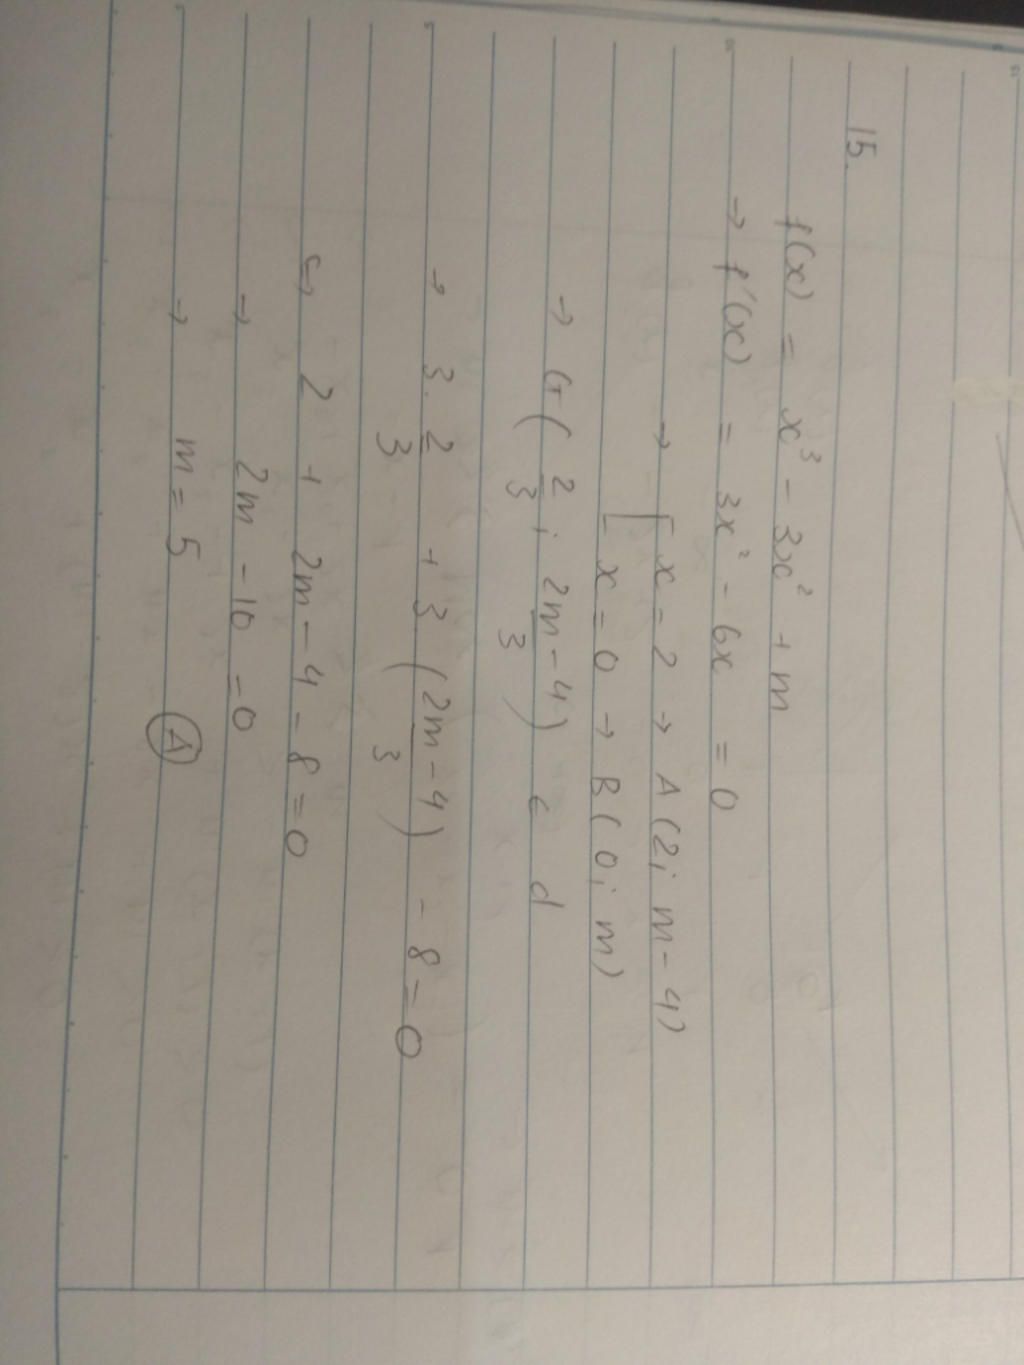 15.
f(x) = x³ - 3x² + m
→ f'(x) = 3x² - 6x = 0
→ [ x = 2 → A(2; m - 4)
[ x = 0 → B(0; m)
→ G(2/3; (2m - 4)/3) ∈ d
→ 3. 2/3 + 3((2m - 4)/3) - 8 = 0
↔ 2 + 2m - 4 - 8 = 0
→ 2m - 10 = 0
→ m = 5 Ⓐ